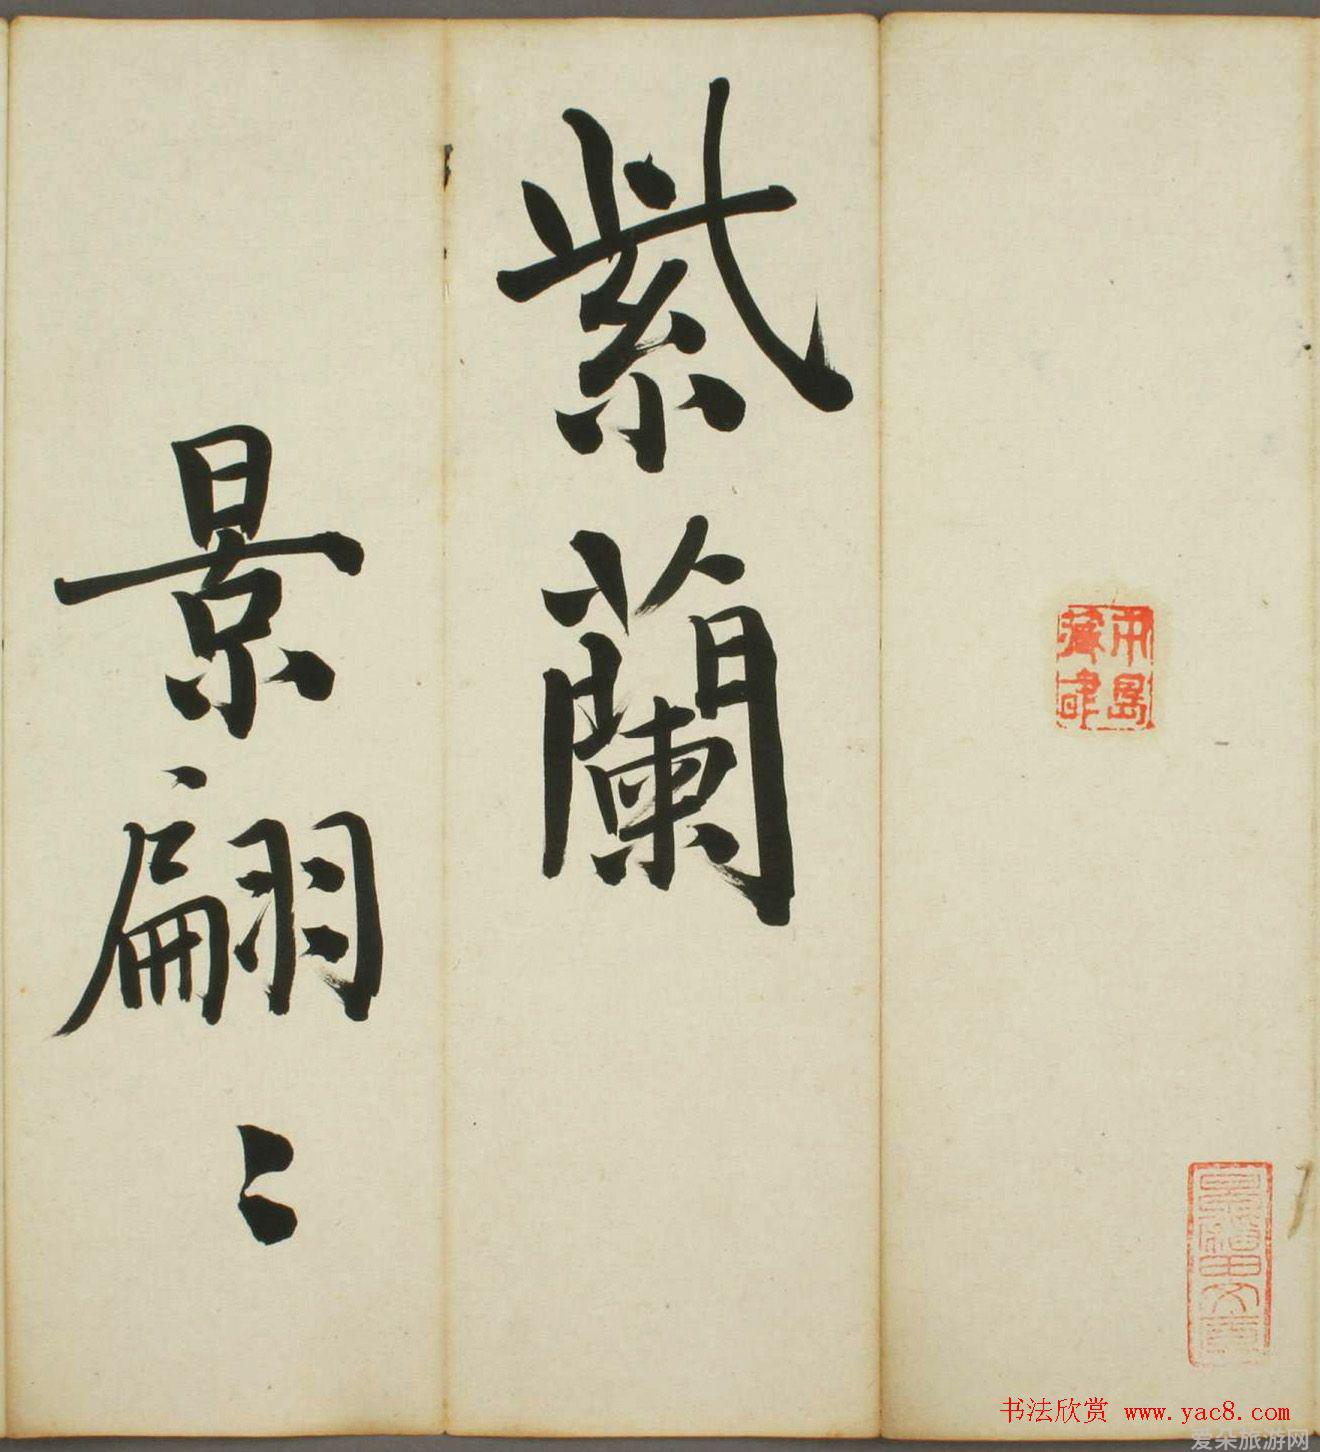 紫蘭
景翩〻
书法欣赏 www.yac8.com
爱朵旅游网